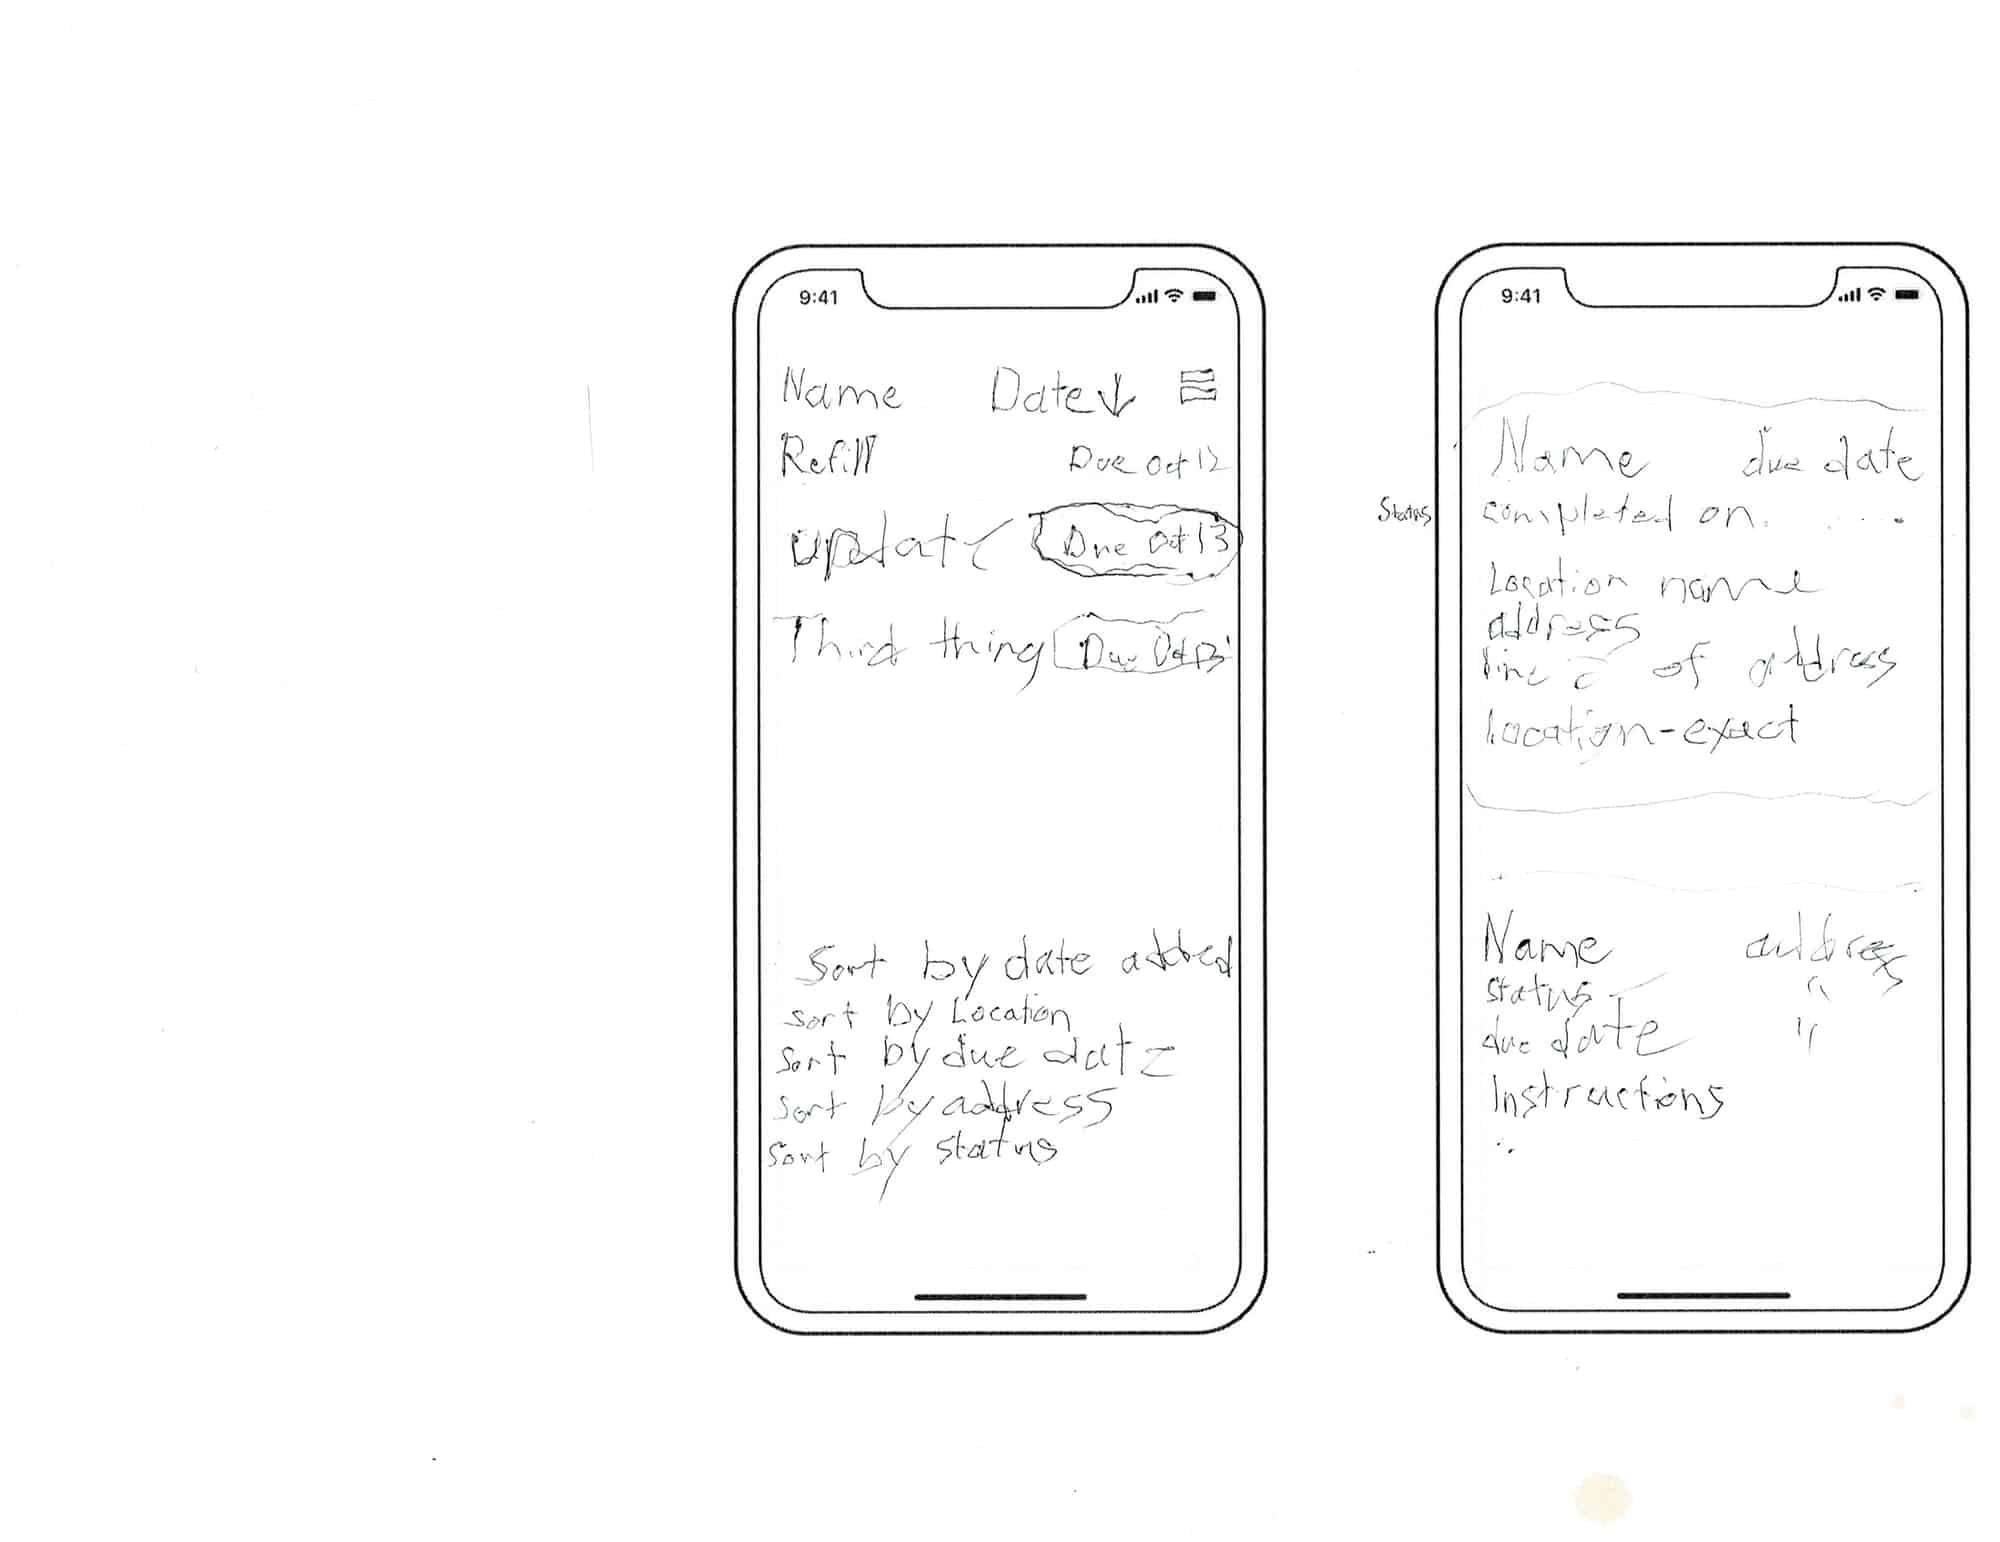 9:41
Name Date↓
Refill Due Oct 12
update Due Oct 13
Third thing Due Oct 13
Sort by date added
sort by Location
Sort by due date
sort by address
Sort by status
9:41
Name due date
Status completed on. ....
Location name
address
line 2 of address
Location-exact
Name address
status "
due date "
Instructions